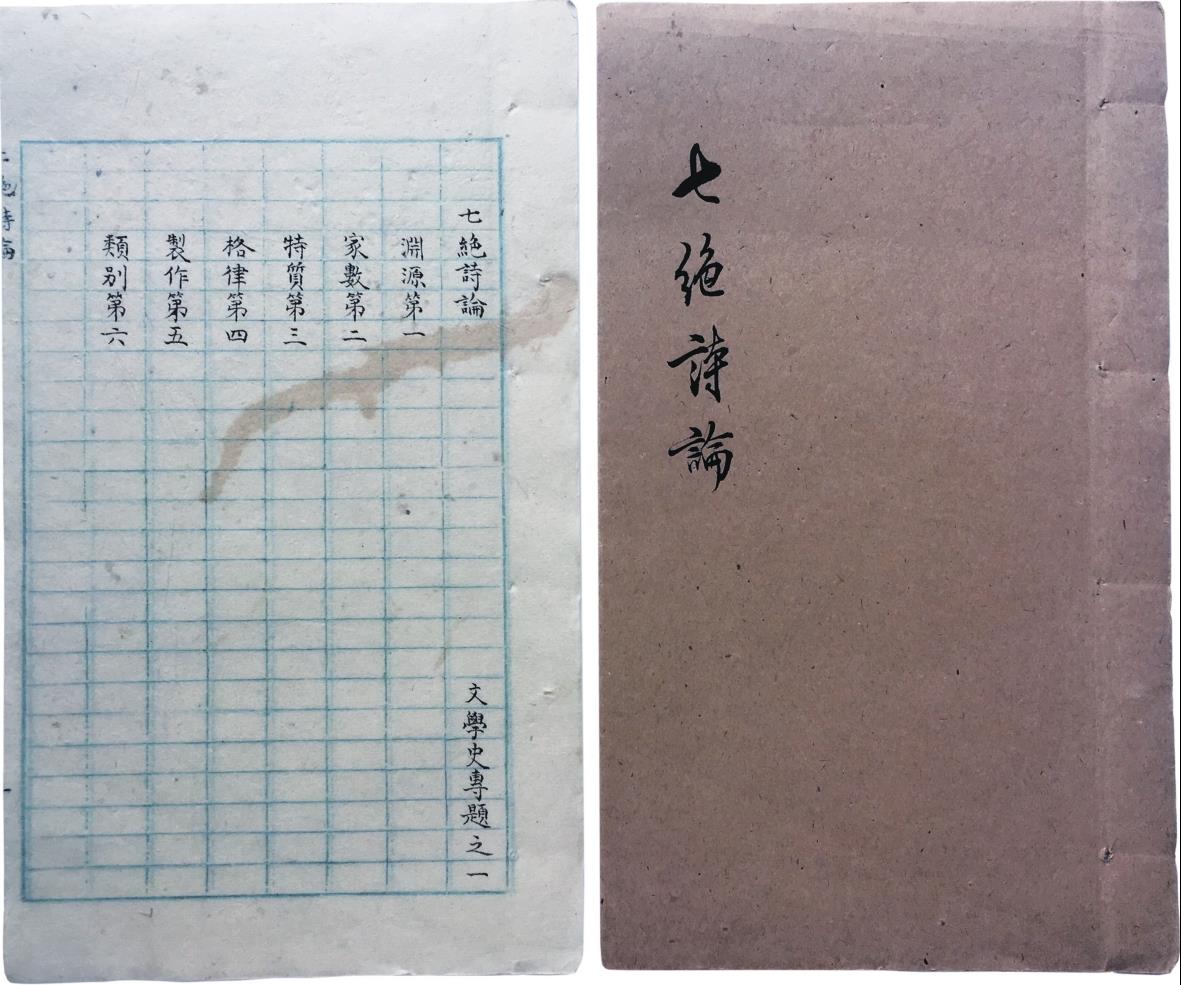 七絶詩論
七絶詩論
文學史專題之一
淵源第一
家數第二
特質第三
格律第四
製作第五
類别第六
詩論